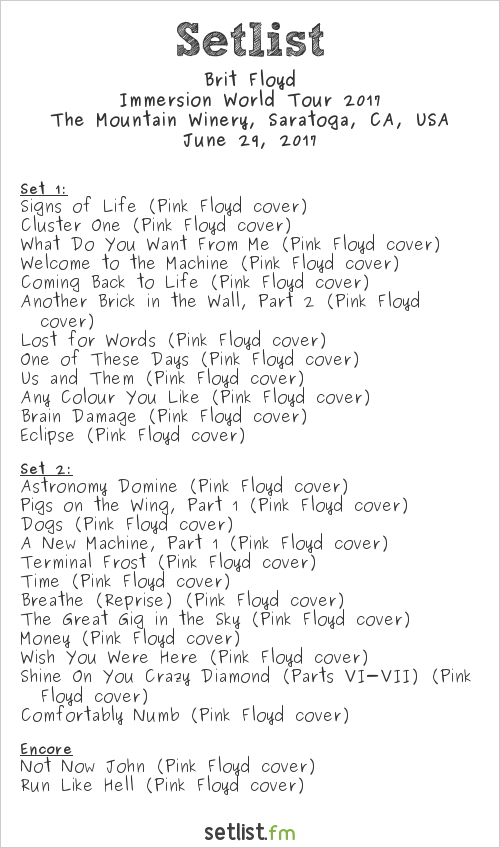 Setlist
Brit Floyd
Immersion World Tour 2017
The Mountain Winery, Saratoga, CA, USA
June 29, 2017
Set 1:
Signs of Life (Pink Floyd cover)
Cluster One (Pink Floyd cover)
What Do You Want From Me (Pink Floyd cover)
Welcome to the Machine (Pink Floyd cover)
Coming Back to Life (Pink Floyd cover)
Another Brick in the Wall, Part 2 (Pink Floyd
cover)
Lost for Words (Pink Floyd cover)
One of These Days (Pink Floyd cover)
Us and Them (Pink Floyd cover)
Any Colour You Like (Pink Floyd cover)
Brain Damage (Pink Floyd cover)
Eclipse (Pink Floyd cover)
Set 2:
Astronomy Domine (Pink Floyd cover)
Pigs on the Wing, Part 1 (Pink Floyd cover)
Dogs (Pink Floyd cover)
A New Machine, Part 1 (Pink Floyd cover)
Terminal Frost (Pink Floyd cover)
Time (Pink Floyd cover)
Breathe (Reprise) (Pink Floyd cover)
The Great Gig in the Sky (Pink Floyd cover)
Money (Pink Floyd cover)
Wish You Were Here (Pink Floyd cover)
Shine On You Crazy Diamond (Parts VI-VII) (Pink
Floyd cover)
Comfortably Numb (Pink Floyd cover)
Encore
Not Now John (Pink Floyd cover)
Run Like Hell (Pink Floyd cover)
setlist.fm